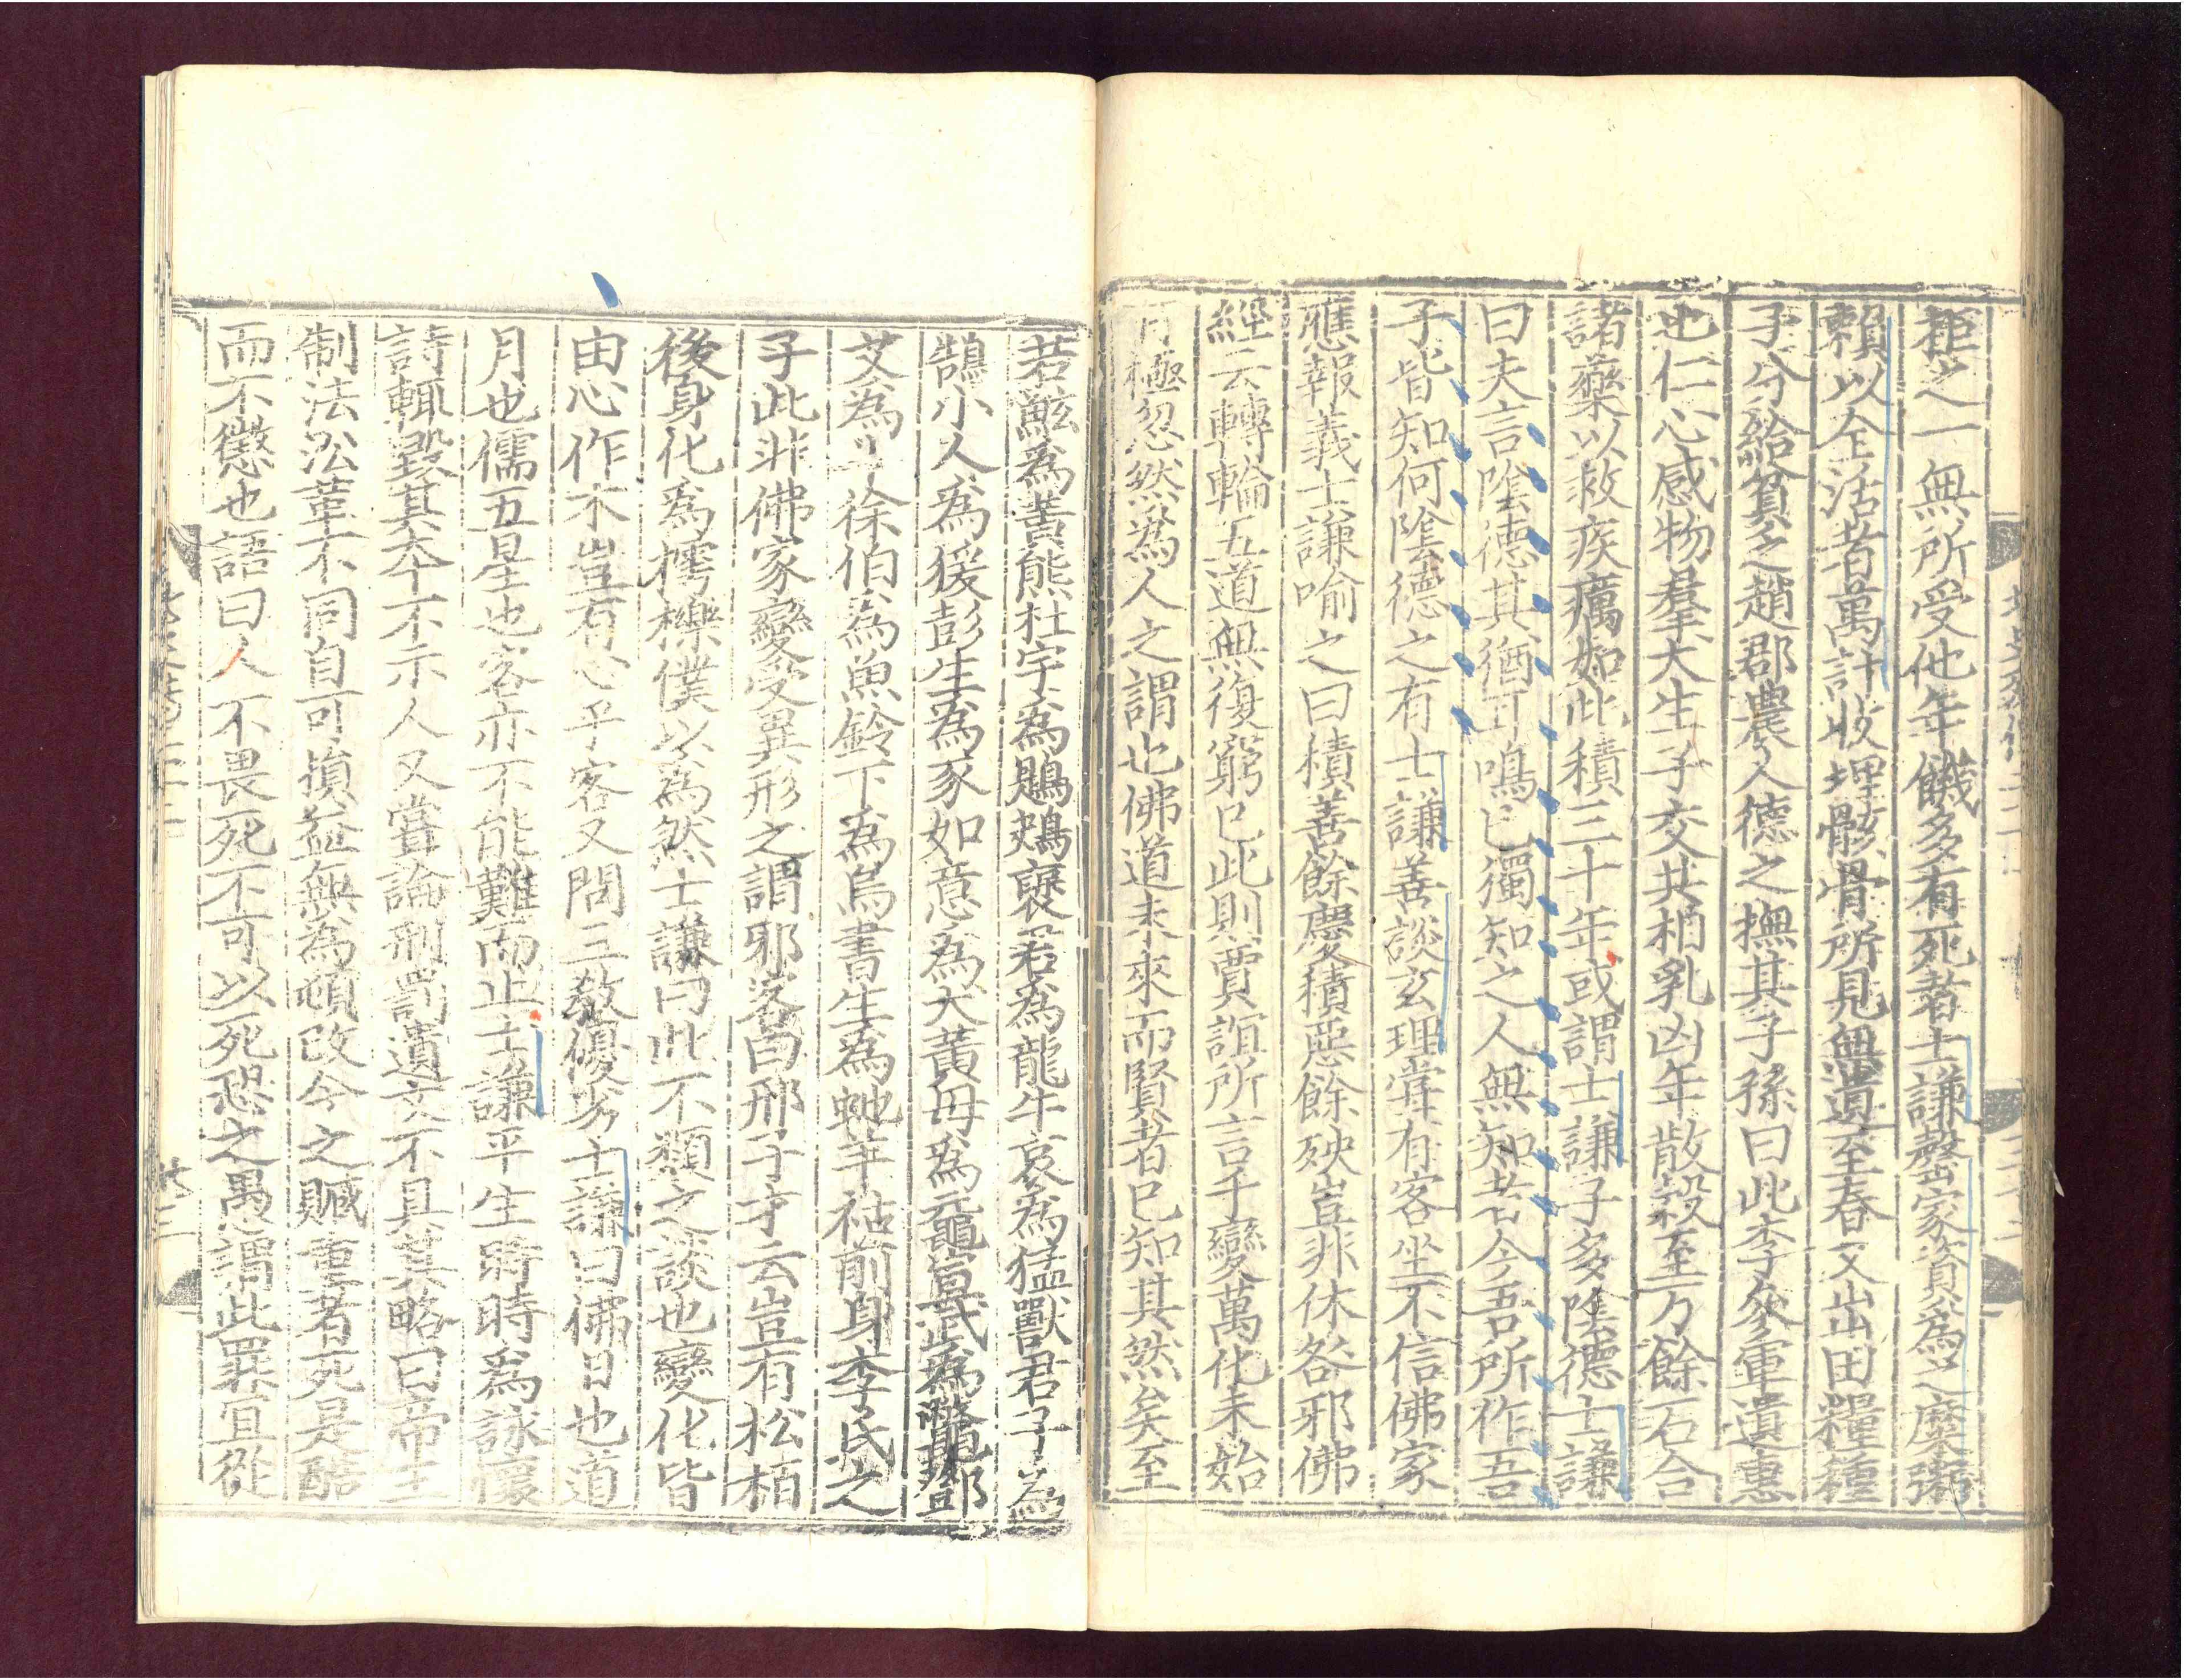 拒之一無所受他年饑多有死者士謙罄家資爲之糜粥
賴以全活者萬計收埋骸骨所見無遺至春又出田糧種
子分給貧乏趙郡農人德之撫其子孫曰此李參軍遺惠
也仁心感物羣犬生子交共相乳凶年散穀至万餘石合
諸藥以救疾癘如此積三十年或謂士謙子多陰德士謙
曰夫言陰德其猶耳鳴已獨知之人無知者今吾所作吾
子皆知何陰德之有士謙善談玄理嘗有客坐不信佛家
應報義士謙喻之曰積善餘慶積惡餘殃豈非休咎邪佛
經云轉輪五道無復窮已此則賈誼所言千變萬化未始
有極忽然爲人之謂也佛道未來而賢者已知其然矣至
若鮌爲黃熊杜宇爲鶗鴂襃君爲龍牛哀爲猛獸君子爲
鵠小人爲猨彭生爲豕如意爲犬黃母爲黿宣武爲鼈鄧
艾爲牛徐伯爲魚鈴下爲烏書生爲蛇羊祜前身李氏之
子此非佛家變受異形之謂邪客曰邢子才云豈有松栢
後身化爲樗櫟僕以爲然士謙曰此不類之談也變化皆
由心作木豈有心乎客又問三敎優劣士謙曰佛日也道
月也儒五星也客亦不能難而止士謙平生時時爲詠懷
詩輒毀其本不示人又嘗論刑罰遺文不具其略曰帝王
制法沿革不同自可損益無爲頓改今之贓重者死是酷
而不懲也語曰人不畏死不可以死恐之愚謂此罪宜從